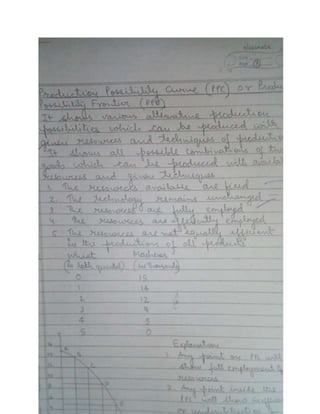 Production Possibility Curve (PPC) or Produ
Possibility Frontier (PPF)
It shows various alternative production
possibilities which can be produced with
given resources and techniques of production
It shows all possible combinations of the
goods which can be produced with availa
resources and given techniques
1. The resources available are fixed
2. The technology remains unchanged
3. The resources are fully employed
4. The resources are efficiently employed
5. The resources are not equally efficient
in the production of all products
Wheat Machines
(in lakh quintal) (in thousands)
0 15
1 14
2 12
3 9
4 5
5 0
Explanation
1. Any point on PPC will
show full employment
resources
2. Any point inside the
PPC will show